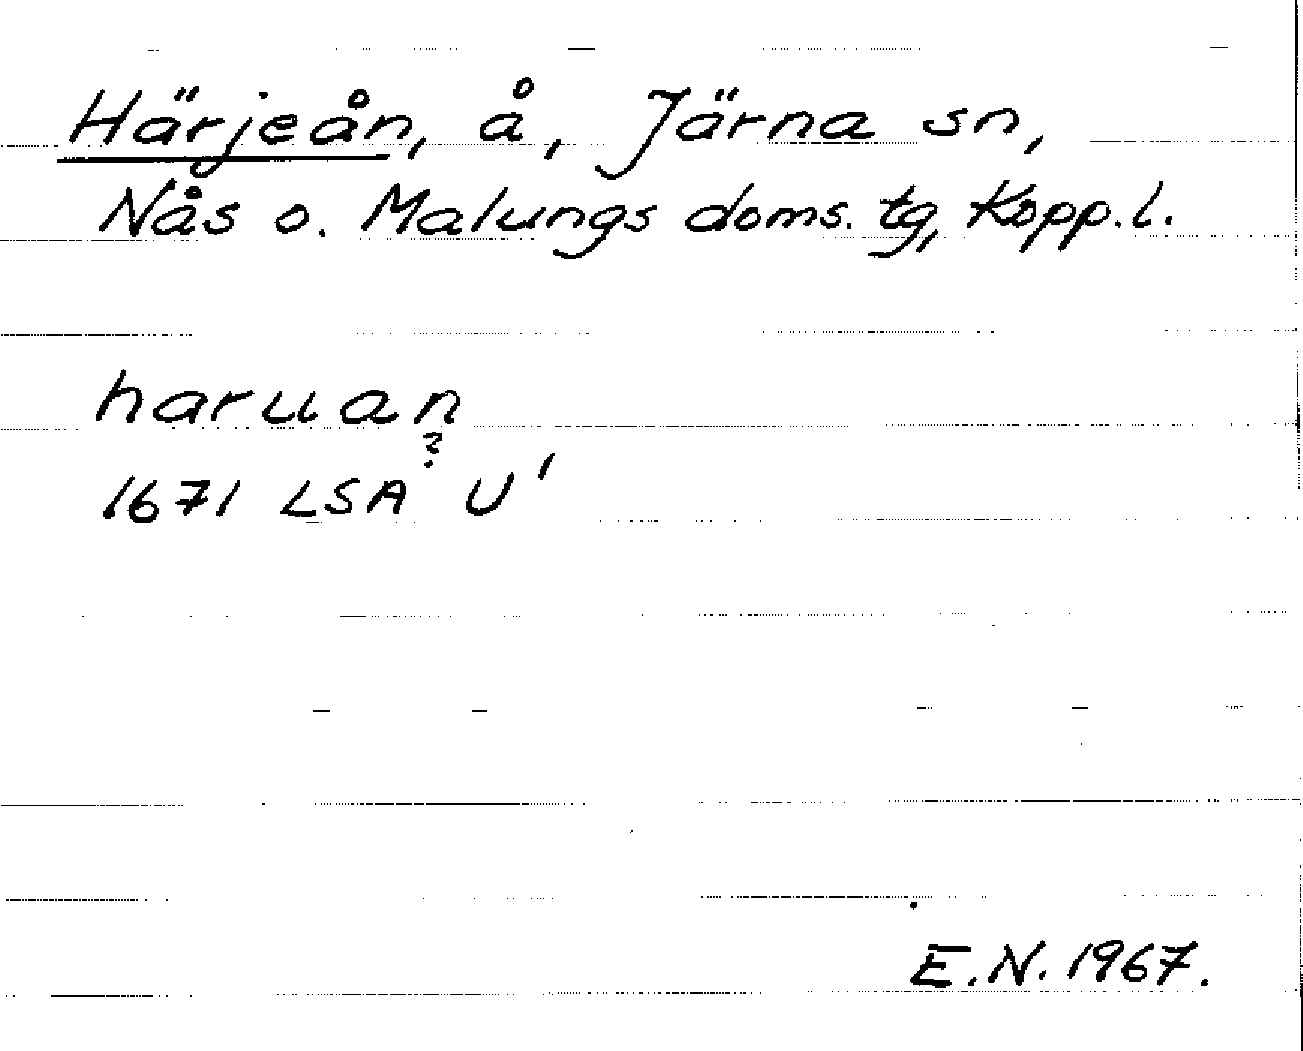 Härjeån, å, Järna sn,
Nås o. Malungs doms. tg, Kopp. l.
haruan
?
1671 LSA U'
E.N. 1967.